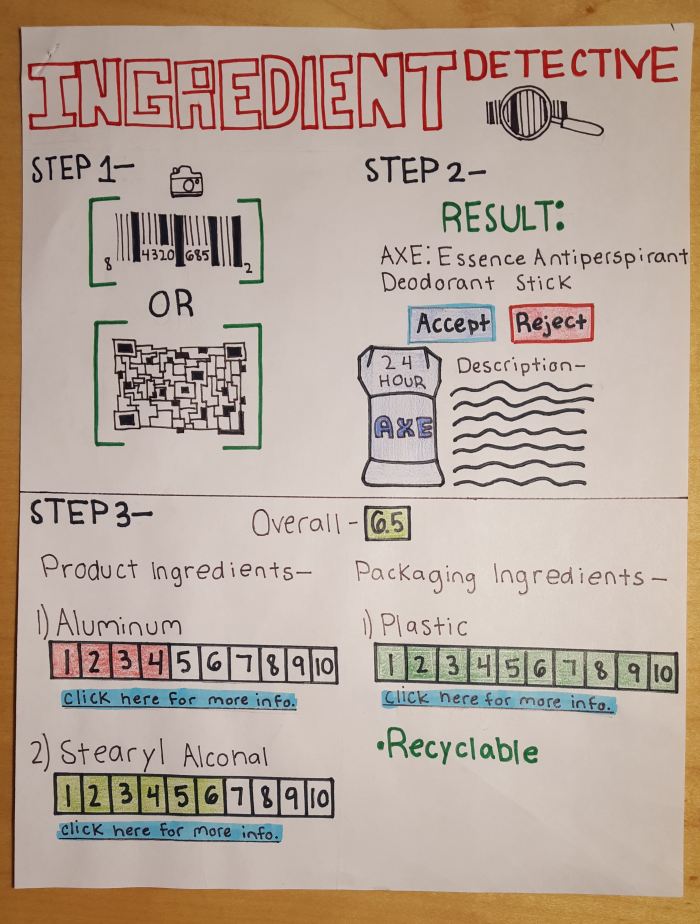 INGREDIENT DETECTIVE
STEP 1-
8 4320 685 2
OR
STEP 2-
RESULT:
AXE: Essence Antiperspirant
Deodorant Stick
Accept Reject
24
HOUR
AXE
Description-
STEP 3-
Overall - 6.5
Product Ingredients-
1) Aluminum
1 2 3 4 5 6 7 8 9 10
click here for more info.
2) Stearyl Alconal
1 2 3 4 5 6 7 8 9 10
click here for more info.
Packaging Ingredients-
1) Plastic
1 2 3 4 5 6 7 8 9 10
click here for more info.
•Recyclable